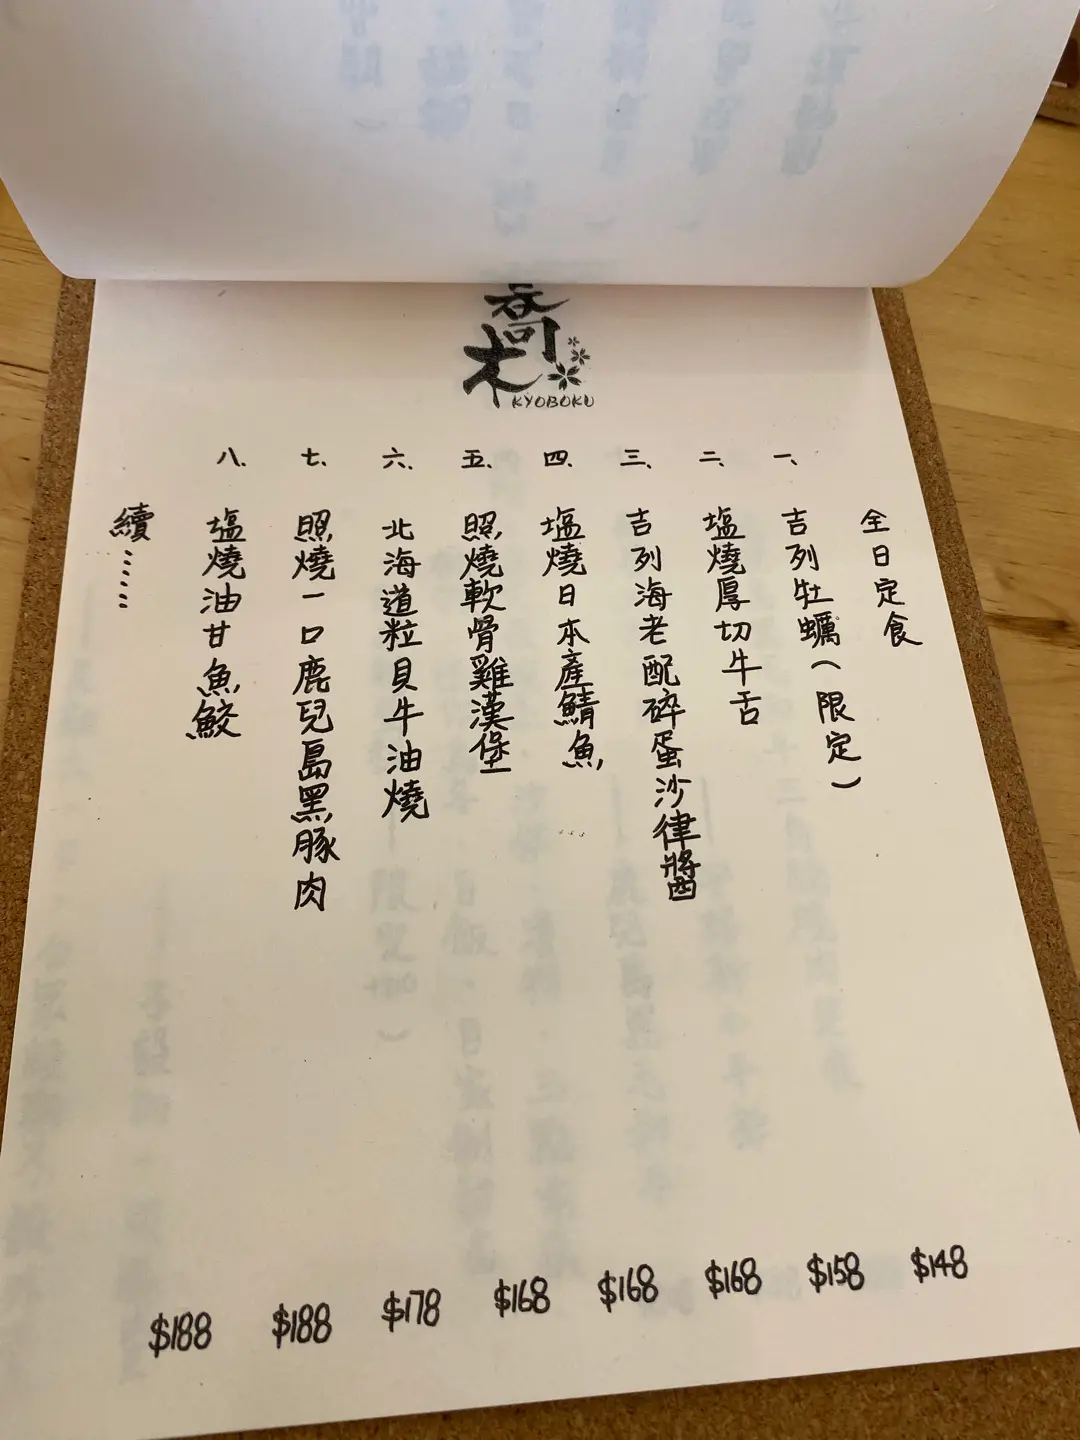 喬木
KYOBOKU
全日定食
一、吉列牡蠣(限定)
$148
二、塩燒厚切牛舌
$158
三、吉列海老配碎蛋沙律醬
$168
四、塩燒日本產鯖魚
$168
五、照燒軟骨雞漢堡
$168
六、北海道粒貝牛油燒
$178
七、照燒一口鹿兒島黑豚肉
$188
八、塩燒油甘魚鮫
$188
續……